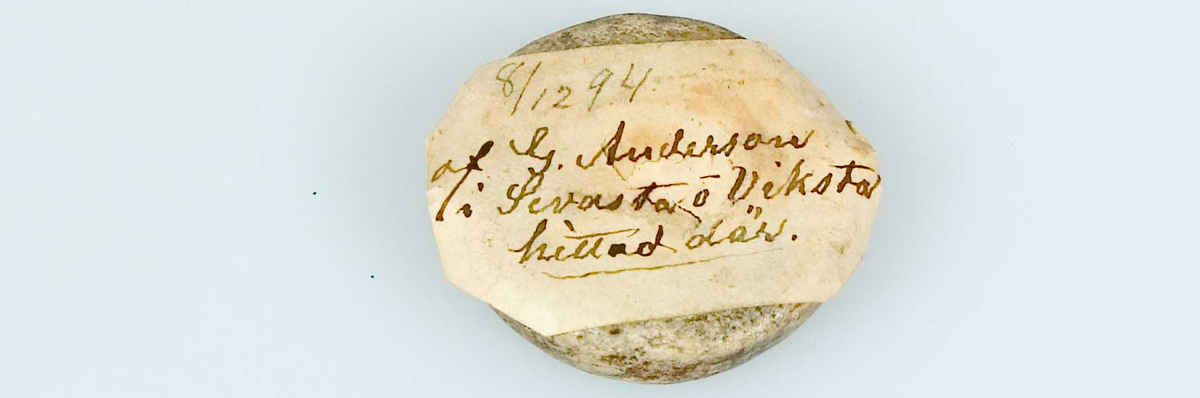 8/12 94
af G. Anderson
i Sevasta ō Viksta
hittad där.